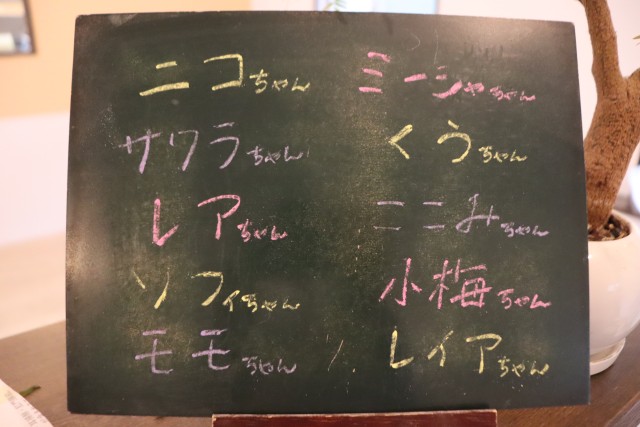 ニコちゃん
ミーシャちゃん
サワラちゃん
くうちゃん
レアちゃん
ここみちゃん
ソフィちゃん
小梅ちゃん
モモちゃん
レイアちゃん